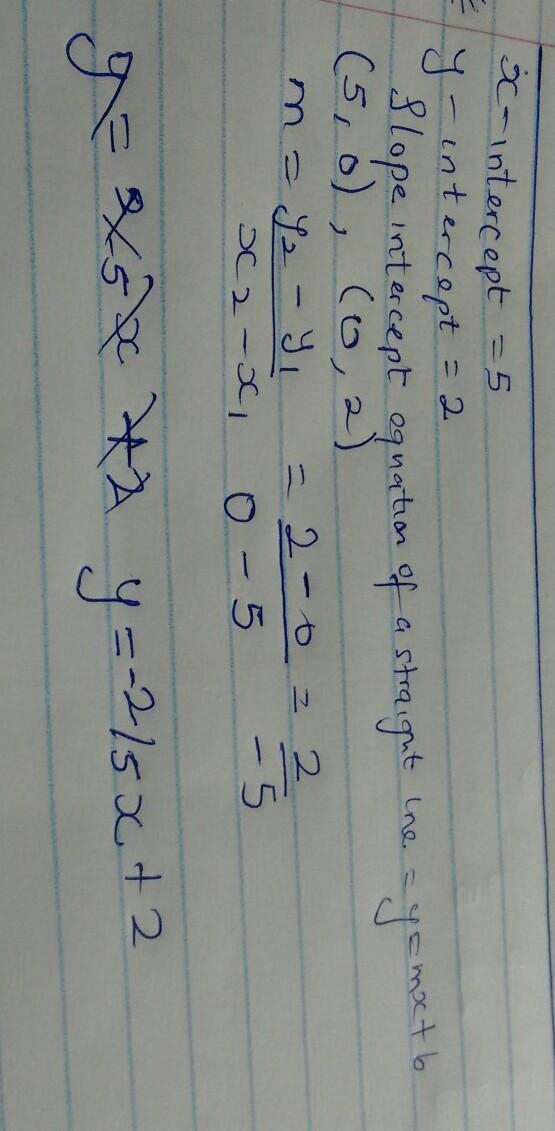 x-intercept = 5
y-intercept = 2
Slope intercept equation of a straight line = y = mx + b
(5, 0), (0, 2)
m = y₂ - y₁ / x₂ - x₁ = 2 - 0 / 0 - 5 = 2 / -5
y = -2/5x + 2